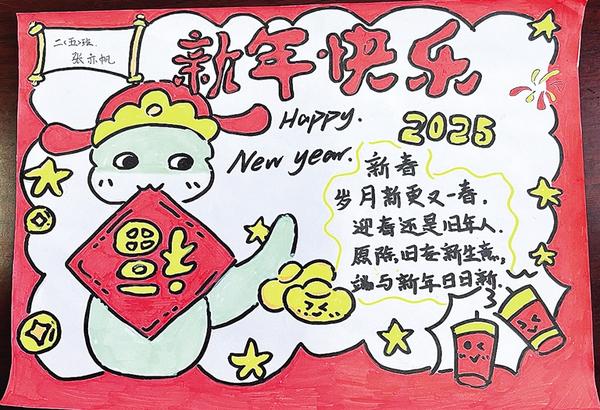 二(五)班.
张亦帆
新年快乐
Happy.
New year.
2025
新春
岁月新更又一春.
迎春还是旧年人.
原陈旧去新生意,
端与新年日日新.
福